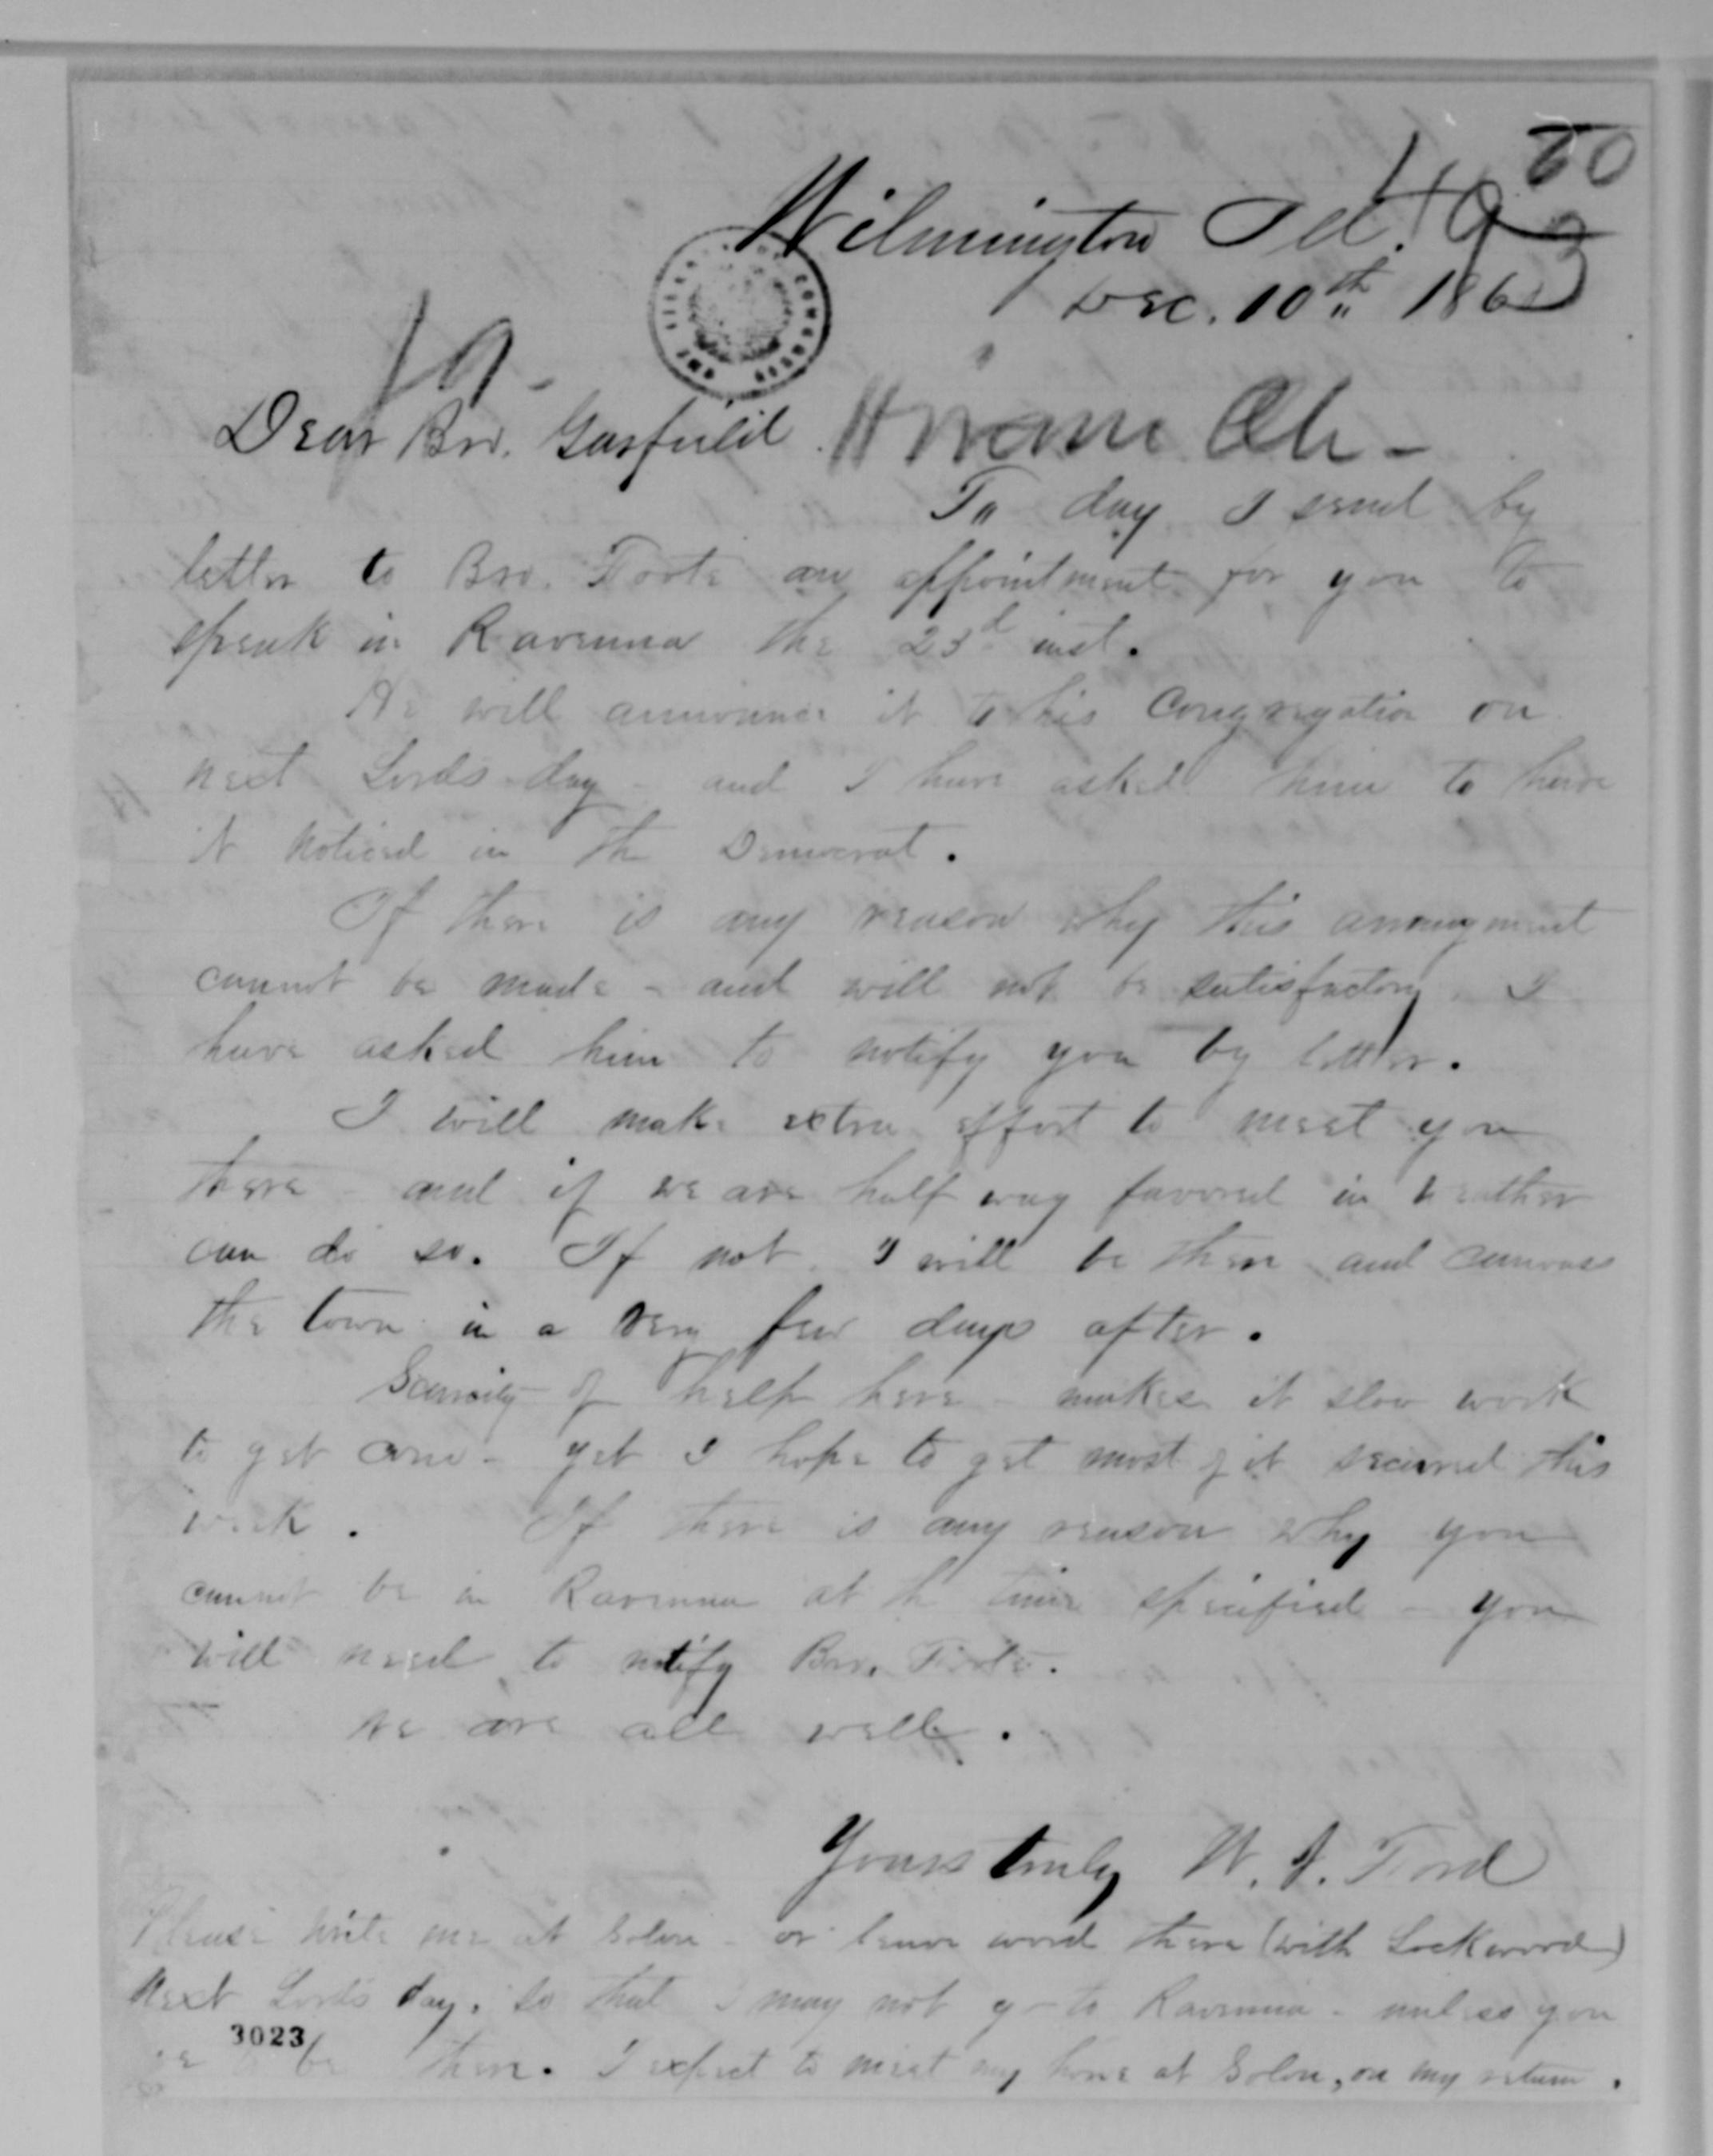 50
493
Wilmington Ill.
Dec. 10th 186
19.
Dear Bro. Garfield. Hiram Oh -
To day I send by
letter to Bro. Foote an appointment for you to
speak in Ravenna the 23d inst.
He will announce it to his Congregation on
next Lords-day - and I have asked him to have
it noticed in the Democrat.
If there is any reason why this arrangment
cannot be made - and will not be satisfactory. I
have asked him to notify you by letter.
I will make extra effort to meet you
there - and if we are half way favored in weather
can do so. If not, I will be there and canvass
the town in a very few days after.
Scarcity of help here - makes it slow work
to get corn - yet I hope to get most of it secured this
week. If there is any reason why you
cannot be in Ravenna at th time specified - you
will need to notify Bro. Foote.
We are all well.
Yours truly W. J. Ford
Please write me at Solon - or leave word there (with Lockwood)
next Lords day, so that I may not go to Ravenna - unless you
3023
be there. I expect to meet my horse at Solon, on my return.